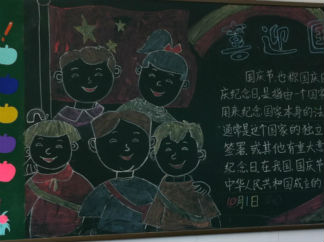 喜迎国
国庆节,也称国庆
庆纪念日,是指由一个国家
用来纪念国家本身的法
通常是这个国家的独立
签署,或其他有重大意
纪念日,在我国,国庆节
中华人民共和国成立的
10月1日